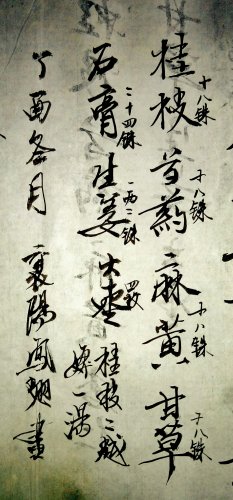 桂枝十八銖芍药十八銖麻黄十八銖甘草十八銖
石膏二十四銖生姜一两二銖大枣四枚桂枝二越婢一湯
丁酉冬月襄陽鳳翔書